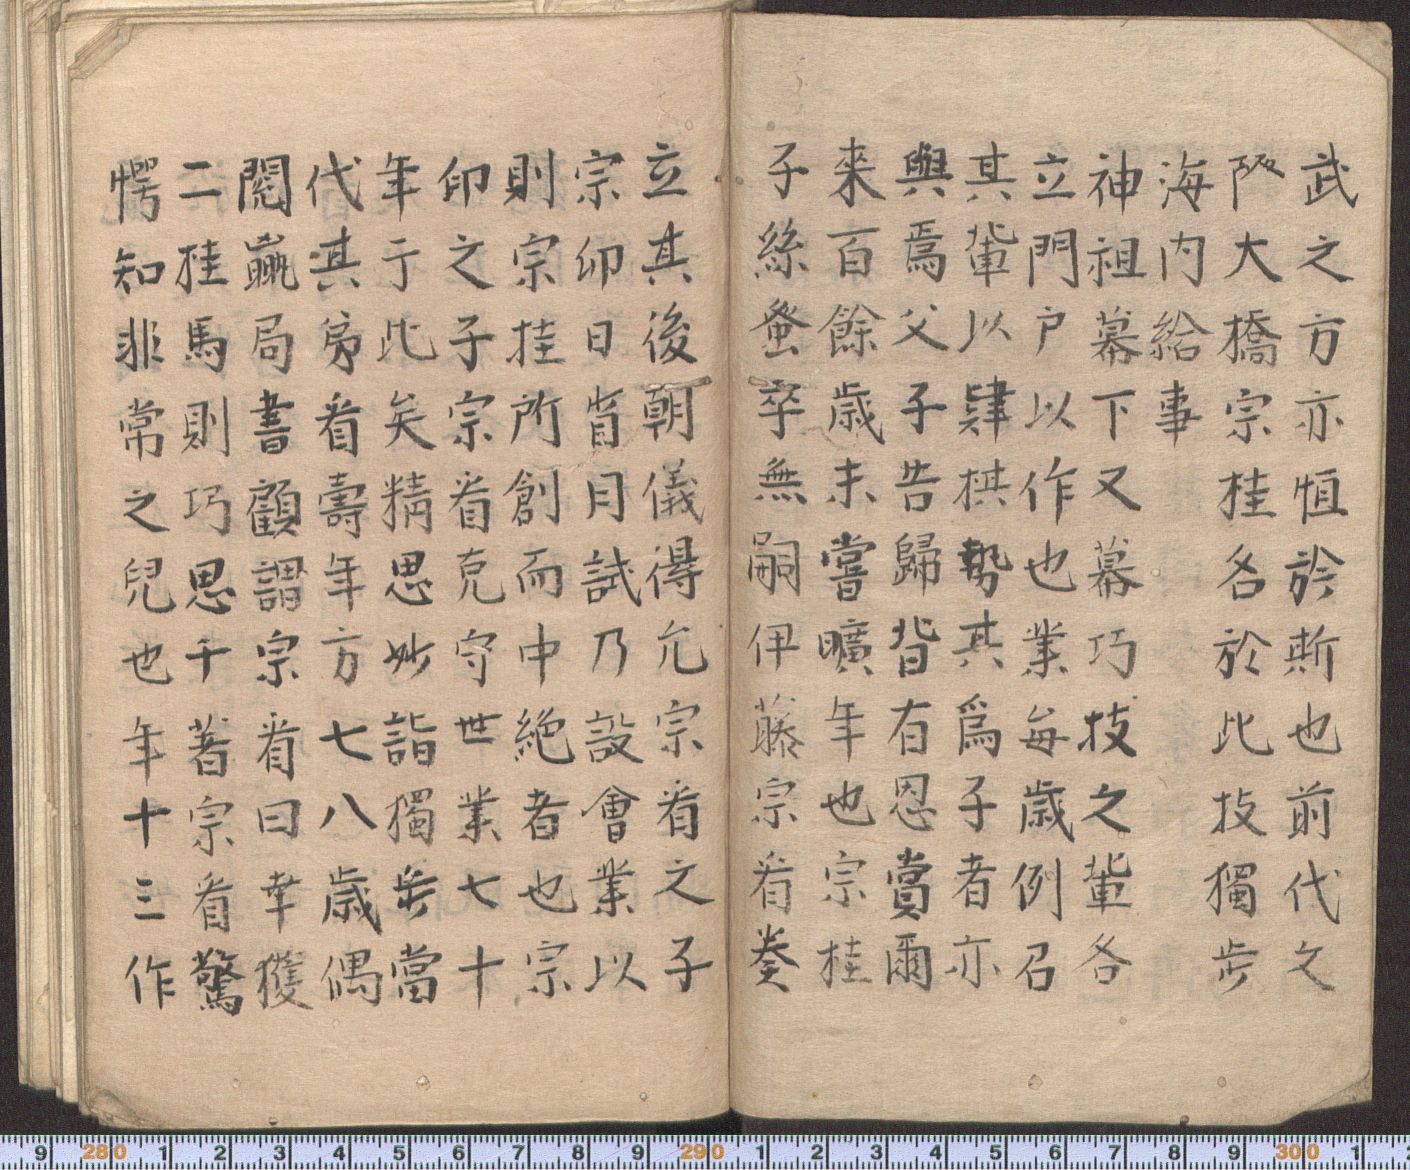 武之方亦恒於斯也前代文
陞大橋宗桂名於此技獨步
海内給事
神祖幕下又幕巧技之輩各
立門户以作也業每歳例召
其輩以肆棋勢其爲子者亦
與焉父子告歸皆有恩賞爾
来百餘歳未嘗曠年也宗桂
子絲蚤卒無嗣伊藤宗看奏
立其後朝儀得允宗看之子
宗印日省月試乃設會業以
則宗桂所創而中絶者也宗
印之子宗看克守世業七十
年于此矣精思妙詣獨步當
代其弟看壽年方七八歳偶
閲嬴局書顧謂宗看曰幸獲
二桂馬則巧思千著宗看驚
愕知非常之兒也年十三作
9 280 1 2 3 4 5 6 7 8 9 290 1 2 3 4 5 6 7 8 9 300 1 2